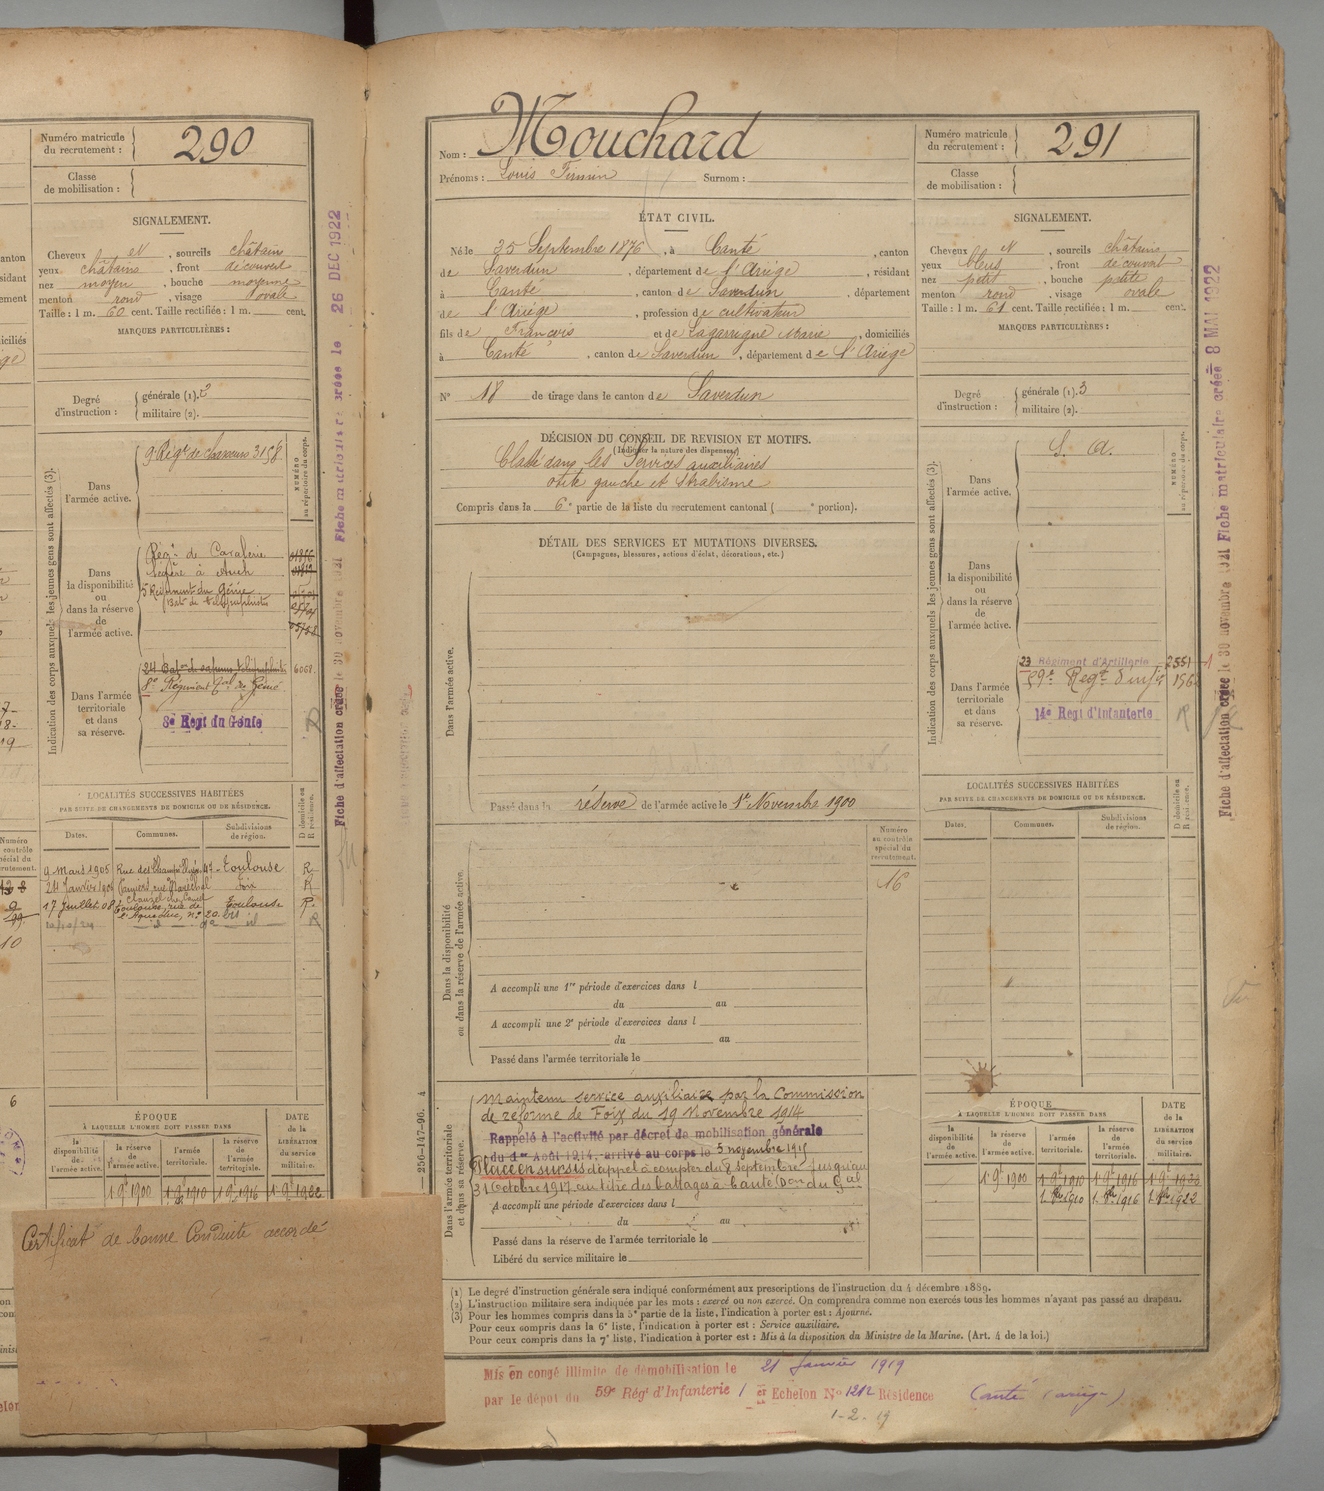 Numéro matricule
du recrutement : 290
Classe
de mobilisation :
SIGNALEMENT.
Cheveux N , sourcils châtains
yeux châtains , front découvert
nez moyen , bouche moyenne
menton rond , visage ovale
Taille : 1 m. 60 cent. Taille rectifiée : 1 m. cent.
MARQUES PARTICULIÈRES :
Degré
d'instruction :
générale (1). 3
militaire (2).
Indication des corps auxquels les jeunes gens sont affectés (3).
NUMÉRO
au répertoire du corps.
Dans
l'armée active.
9e Régt de chasseurs 3158
Dans
la disponibilité
ou
dans la réserve
de
l'armée active.
Régt de Cavalerie
légère à Auch
5 Régiment du Génie
Bat. de télégraphistes
Dans l'armée
territoriale
et dans
sa réserve.
6068
8e Régiment du Génie
8e Régt du Génie
LOCALITÉS SUCCESSIVES HABITÉES
PAR SUITE DE CHANGEMENTS DE DOMICILE OU DE RÉSIDENCE.
D domicile ou
R résidence.
Dates. Communes. Subdivisions
de région.
9 Mars 1905 Rue des Toulouse R
Foix R
17 Juillet 08 Toulouse, rue de Toulouse R
l'Aqueduc, n° 20 bis
ÉPOQUE
À LAQUELLE L'HOMME DOIT PASSER DANS
DATE
de la
LIBÉRATION
du service
militaire.
la
disponibilité
de
l'armée active.
la réserve
de
l'armée active.
l'armée
territoriale.
la réserve
de
l'armée
territoriale.
1 9bre 1900 1 9bre 1910 1 9bre 1916 1 9bre 1922
Certificat de bonne Conduite accordé
Fiche d'affectation créée le 30 novembre 1921 Fiche matriculaire créée le 26 DEC 1922
Nom : Mouchard
Prénoms : Louis Firmin Surnom :
ÉTAT CIVIL.
Né le 25 Septembre 1876 , à Canté , canton
de Saverdun , département de l'Ariège , résidant
à Canté , canton de Saverdun , département
de l'Ariège , profession de cultivateur
fils de François et de Lagarrigue Marie , domiciliés
à Canté , canton de Saverdun , département de l'Ariège
N° 18 de tirage dans le canton de Saverdun
DÉCISION DU CONSEIL DE REVISION ET MOTIFS.
(Indiquer la nature des dispenses)
Classé dans les Services auxiliaires
otite gauche et strabisme
Compris dans la 6e partie de la liste du recrutement cantonal ( e portion).
DÉTAIL DES SERVICES ET MUTATIONS DIVERSES.
(Campagnes, blessures, actions d'éclat, décorations, etc.)
Dans l'armée active.
Passé dans la réserve de l'armée active le 1er Novembre 1900
Numéro
au contrôle
spécial du
recrutement.
16
Dans la disponibilité
ou dans la réserve de l'armée active.
A accompli une 1re période d'exercices dans l
du au
A accompli une 2e période d'exercices dans l
du au
Passé dans l'armée territoriale le
Dans l'armée territoriale
et dans sa réserve.
Maintenu service auxiliaire par la Commission
de réforme de Foix du 19 Novembre 1914
Rappelé à l'activité par décret de mobilisation générale
du 1er Août 1914, arrivé au corps le 5 novembre 1915
Placé en sursis d'appel à compter du 8 septembre jusqu'au
31 Octobre 1917 au titre des battages à Canté Don du Gal
A accompli une période d'exercices dans l
du au
Passé dans la réserve de l'armée territoriale le
Libéré du service militaire le
(1) Le degré d'instruction générale sera indiqué conformément aux prescriptions de l'instruction du 4 décembre 1889.
(2) L'instruction militaire sera indiquée par les mots : exercé ou non exercé. On comprendra comme non exercés tous les hommes n'ayant pas passé au drapeau.
(3) Pour les hommes compris dans la 5e partie de la liste, l'indication à porter est : Ajourné.
Pour ceux compris dans la 6e liste, l'indication à porter est : Service auxiliaire.
Pour ceux compris dans la 7e liste, l'indication à porter est : Mis à la disposition du Ministre de la Marine. (Art. 4 de la loi.)
Mis en congé illimité de démobilisation le 21 Janvier 1919
par le dépôt du 59e Régt d'Infanterie 1er Echelon N° 1212 Résidence Canté (Ariège)
1-2-19
256-147-96. 4
Numéro matricule
du recrutement : 291
Classe
de mobilisation :
SIGNALEMENT.
Cheveux N , sourcils châtains
yeux bleus , front découvert
nez petit , bouche petite
menton rond , visage ovale
Taille : 1 m. 61 cent. Taille rectifiée : 1 m. cent.
MARQUES PARTICULIÈRES :
Degré
d'instruction :
générale (1). 3
militaire (2).
Indication des corps auxquels les jeunes gens sont affectés (3).
NUMÉRO
au répertoire du corps.
Dans
l'armée active.
S. A.
Dans
la disponibilité
ou
dans la réserve
de
l'armée active.
Dans l'armée
territoriale
et dans
sa réserve.
23 Régiment d'Artillerie 2551
59e Régt d'Infie
14e Régt d'Infanterie R
LOCALITÉS SUCCESSIVES HABITÉES
PAR SUITE DE CHANGEMENTS DE DOMICILE OU DE RÉSIDENCE.
D domicile ou
R résidence.
Dates. Communes. Subdivisions
de région.
ÉPOQUE
À LAQUELLE L'HOMME DOIT PASSER DANS
DATE
de la
LIBÉRATION
du service
militaire.
la
disponibilité
de
l'armée active.
la réserve
de
l'armée active.
l'armée
territoriale.
la réserve
de
l'armée
territoriale.
1 9bre 1900 1 9bre 1910 1 9bre 1916 1 9bre 1922
1. 8bre 1910 1. 8bre 1916 1. 8bre 1922
Fiche d'affectation créée le 30 novembre 1921 Fiche matriculaire créée 8 MAI 1922